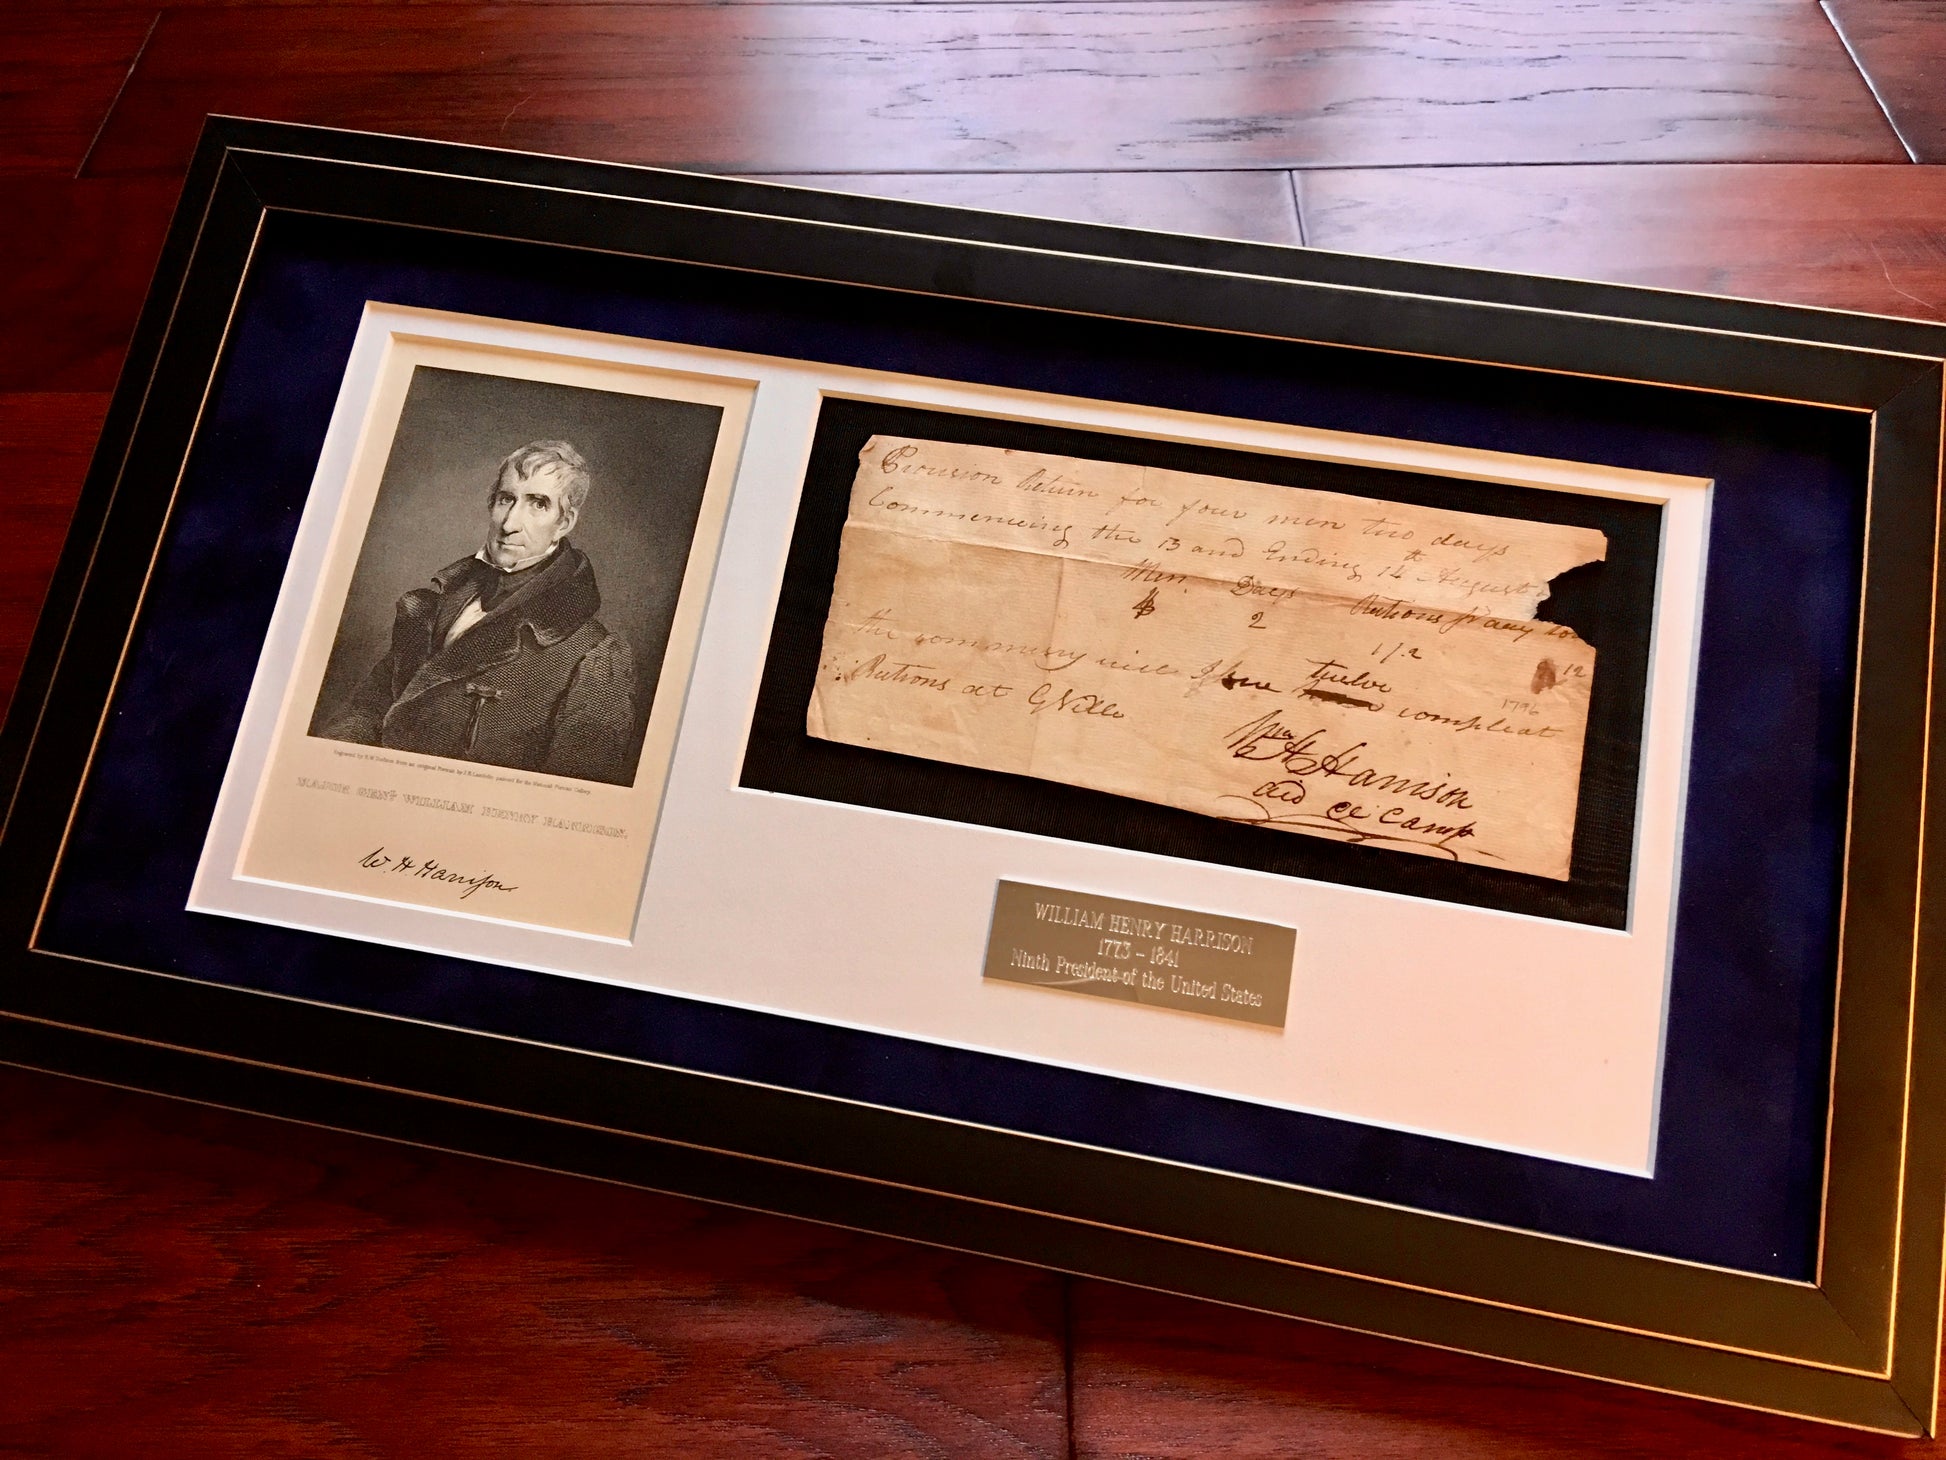 Engraved by R.W. Dodson from an original Portrait by J.R. Lambdin painted for the National Portrait Gallery.
MAJOR GENL. WILLIAM HENRY HARRISON.
W. H. Harrison
Provision Return for four men two days
Commencing the 13 and Ending 14th August
Men Days Rations pr day
4 2 1 1/2 12
the commissary will Issue twelve compleat
1796
Rations at GVille
Wm H Harrison
aid de camp
WILLIAM HENRY HARRISON
1773 - 1841
Ninth President of the United States